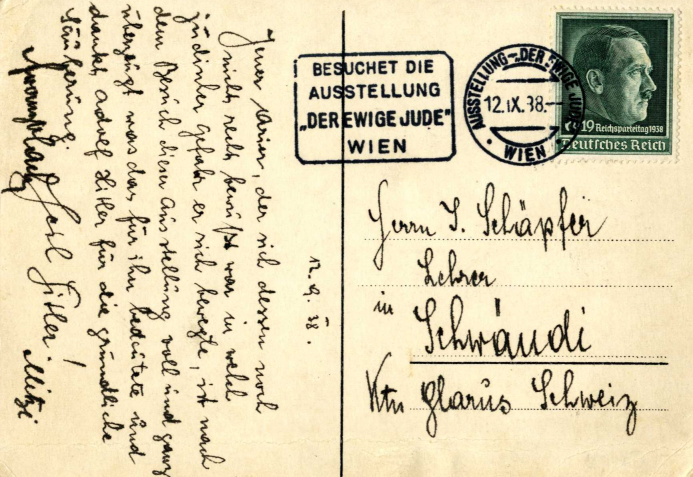 Jener Arier, der sich dessen noch
nicht recht bewußt war in welch
jüdischer Gefahr er sich bewegte, ist nach
dem Besuch dieser Ausstellung voll und ganz
überzeugt was das für ihn bedeutete und
dankt Adolf Hitler für die gründliche
Säuberung.
Heil Hitler!
Mitzi
12.9.38.
BESUCHET DIE
AUSSTELLUNG
„DER EWIGE JUDE"
WIEN
AUSSTELLUNG-„DER EWIGE JUDE"
12.IX.38.-
• WIEN 1 •
6+19 Reichsparteitag 1938
Deutsches Reich
Herrn J. Schäpfer
Lehrer
in
Schwändi
Ktn Glarus Schweiz